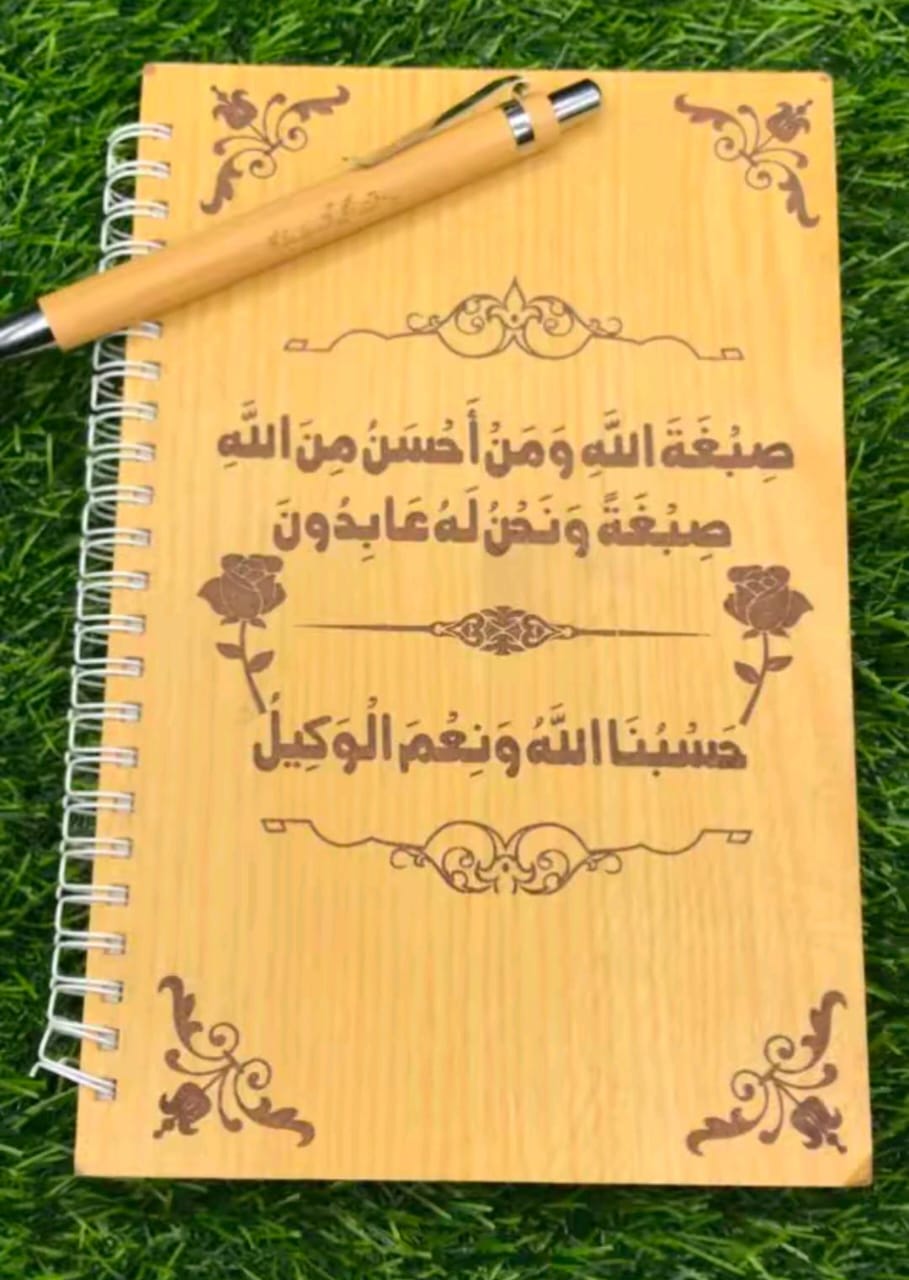 صِبْغَةَ اللَّهِ وَمَنْ أَحْسَنُ مِنَ اللَّهِ
صِبْغَةً وَنَحْنُ لَهُ عَابِدُونَ
حَسْبُنَا اللَّهُ وَنِعْمَ الْوَكِيلُ